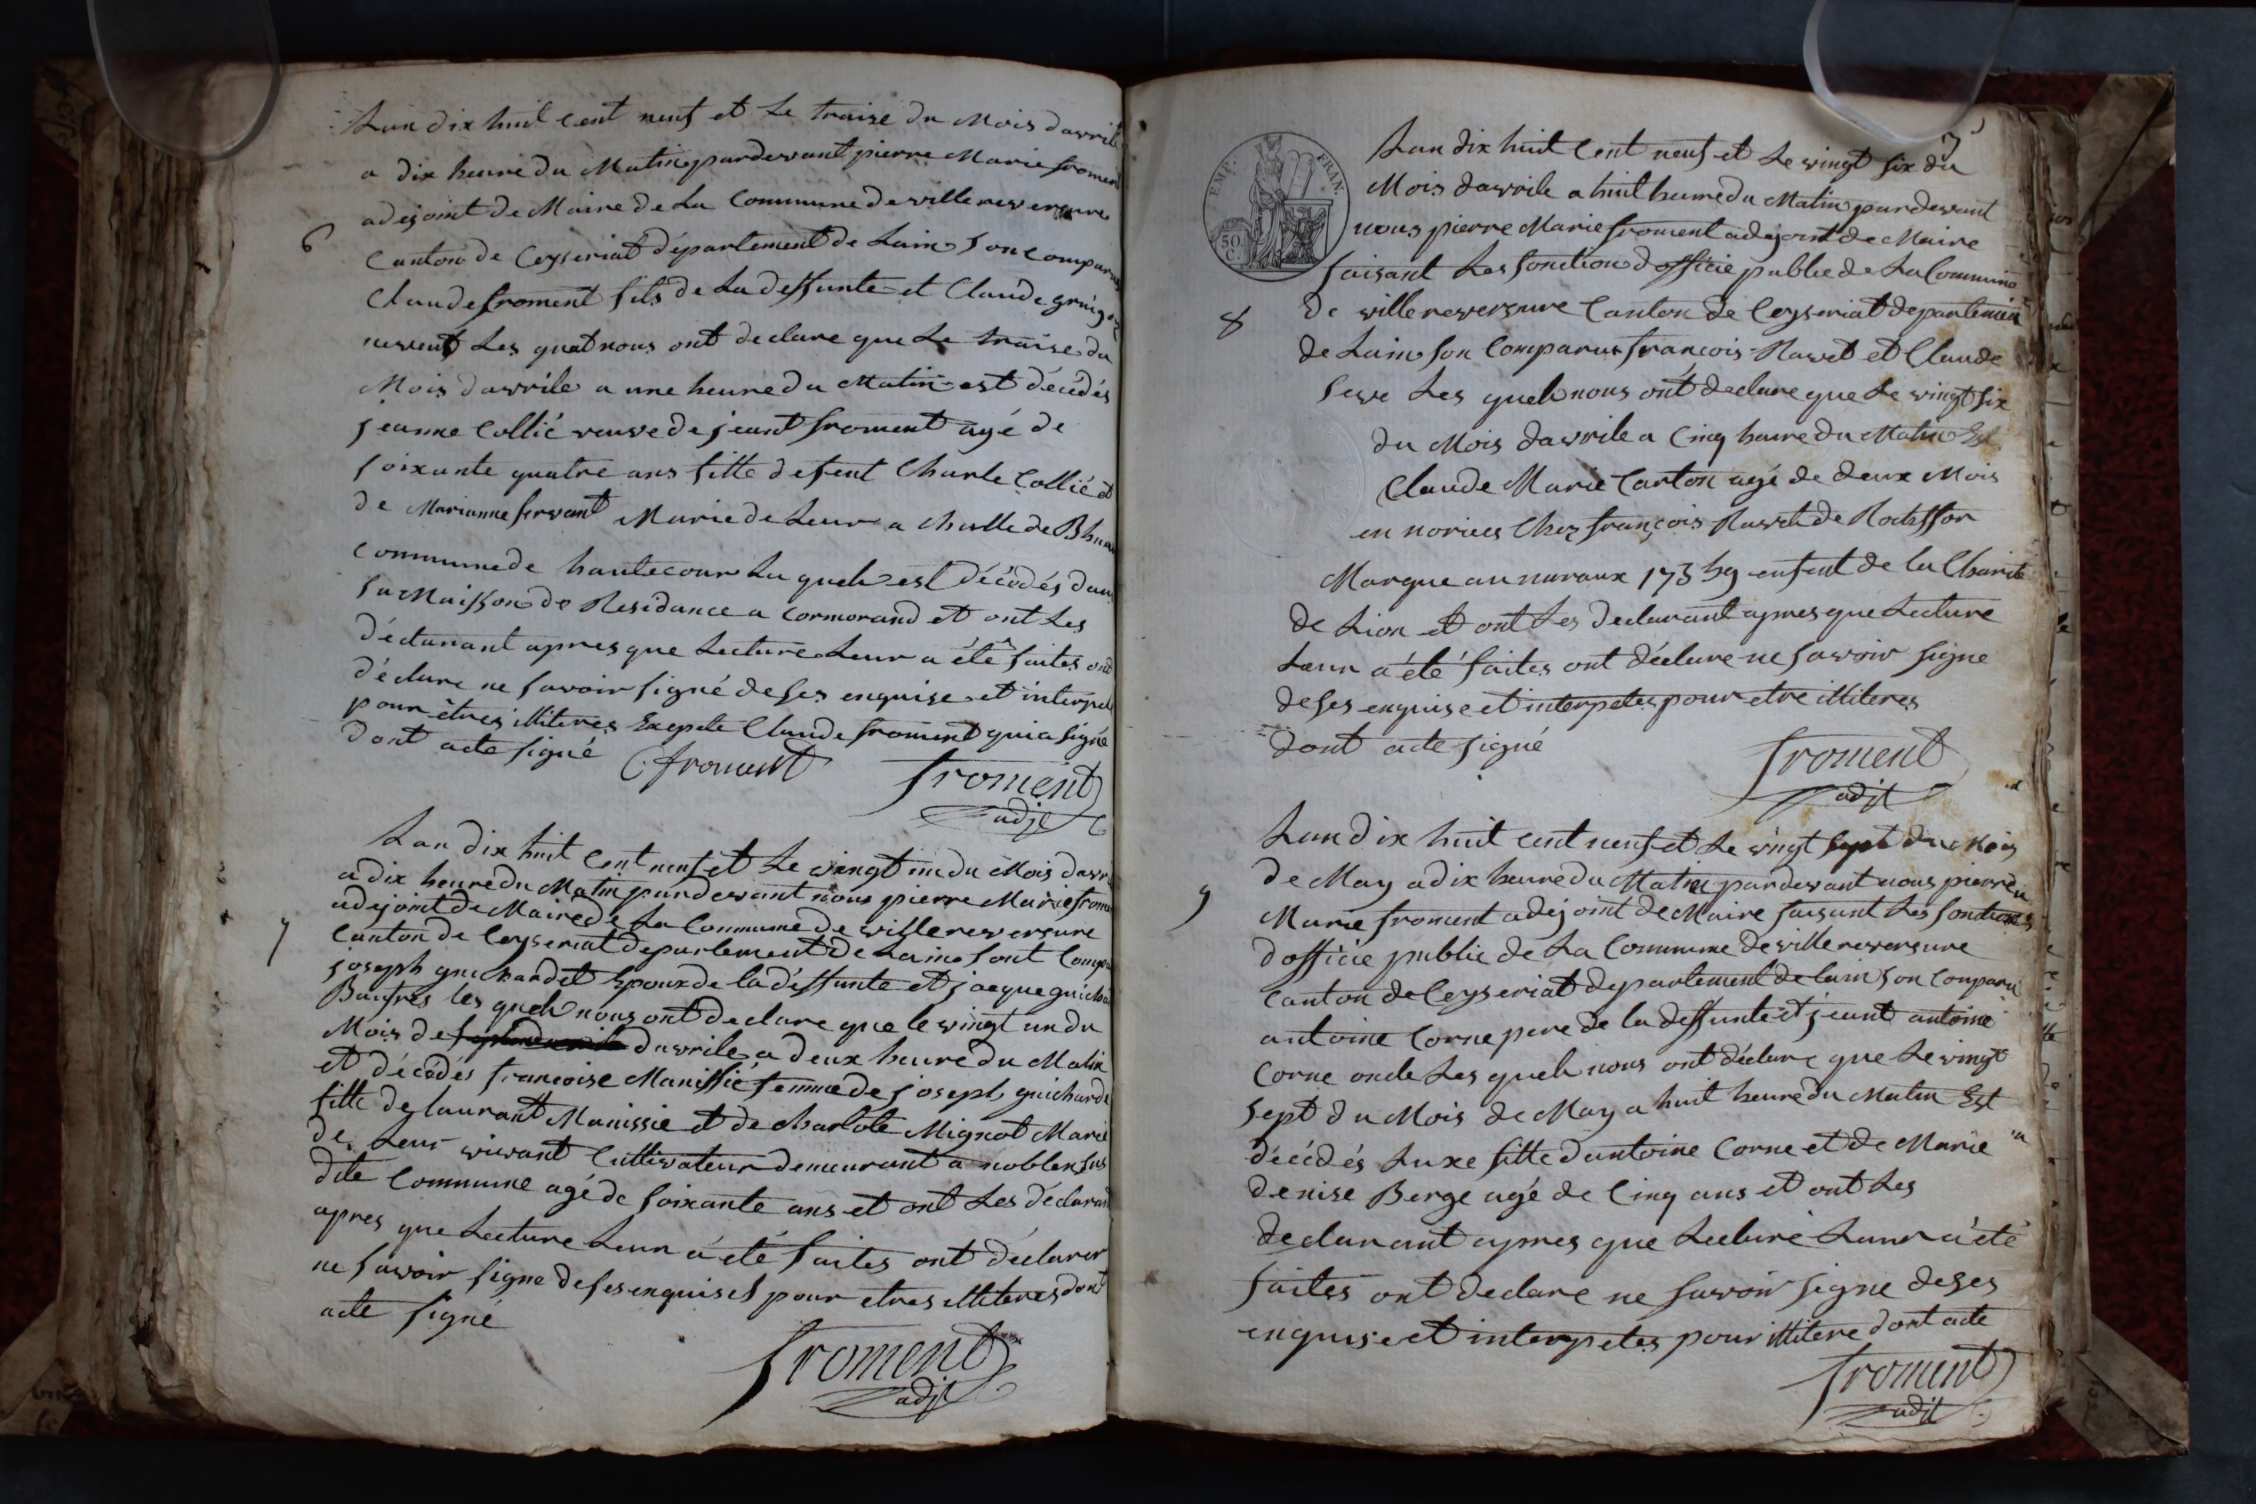 Lan dix huit cent neuf et Le traise du Mois davrile
a dix heure du Matin pardevant pierre Marie froment
adejoint de Maire de La Commune de villereversure
6
Canton de Ceyseriat département de Lain son comparus
Claude froment fils de La deffunte et Claude
neveut Les quel nous ont declare que Le traise du
Mois davrile a une heure du Matin est décédés
jeanne Collié veuve de jeant froment agé de
soixante quatre ans fille de feut Charle Collié et
de Marianne servant Marie de Leur a
commune de hautecour La quel est décédés dans
sa Maisson de Residance a Cormorand et ont Les
déclarant apres que Lecture Leur a été faites ont
déclare ne savoir signé de ses enquise et interpel
pour êtres illiteres Exepte Claude froment qui a signé
dont acte signé C froment froment
adjt
Lan dix huit cent neuf et Le vingt un du Mois davri
a dix heure du Matin pardevant nous pierre Marie from
adejoint de Maire de La Commune de villereversure
7
Canton de Ceyseriat département de Lain sont Compa
joseph guichardet Epoux de la déffunte et jacque guicha
Les quel nous ont declare que le vingt un du
Mois de davrile a deux heure du Matin
et décédés francoise Manissié femme de joseph guicharde
fille de laurant Manissie et de charlote Mignot Marié
de Leur vivant Cultivateur demeurant a noblen sus
dite Commune agé de soixante ans et ont Les déclarant
apres que Lecture Leur a été faites ont déclarer
ne savoir signe de ses enquises pour etres illiteres dont
acte signé
froment
adjt
3
EMP. FRAN.
50 C.
Lan dix huit Cent neuf et Le vingt six du
Mois davrile a huit heure du Matin pardevant
nous pierre Marie froment adejoint de Maire
faisant Les fonction dofficie public de La Commune
8
de villereversure Canton de Ceyseriat departement
de Lain son Comparus françois Ravet et Claude
seve Les quel nous ont declare que Le vingt six
du Mois davrile a Cinq heure du Matin Est
Claude Marie Carton agé de deux Mois
en norices Chez françois Ravet de Rochffor
Marque au nuraux 173 enfent de la Charite
de Lion et ont Les Declarant apres que Lecture
Leur a été faites ont déclare ne savoir signe
de ses enquise et interpeles pour etre illiteres
dont acte signé
froment
adjt
Lan dix huit cent neuf et Le vingt sept du Mois
de May a dix heure du Matin pardevant nous pierre
9
Marie froment adejoint de Maire faisant Les fontions
dofficie public de La Commune de villereversure
Canton de Ceyseriat departement de lain son Comparu
antoine Corne pere de la deffunte et jeant antoine
Corne oncle Les quel nous ont déclare que Le vingt
sept du Mois de May a huit heure du Matin Est
décédés Luxe fille dantoine Corne et de Marie
denise Berge agé de Cinq ans et ont Les
declarant apres que Lecture Leur a été
faites ont declare ne savoir signe de ses
enquise et interpeles pour illitere dont acte
froment
adjt